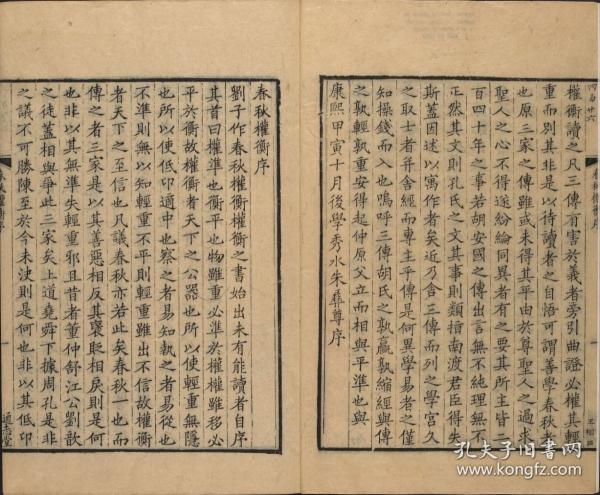 四百廿六
權衡讀之凡三傳有害於義者旁引曲證必權其輕
重而別其非是以待讀者之自悟可謂善學春秋
也原三家之傳雖或未得其平由於尊聖人之過求
聖人之心不得遂紛綸同異者有之要其所主皆二
百四十年之事若胡安國之傳出言無不純理無不
正然其文則孔氏之文其事則類指南渡君臣得失
斯蓋因述以寓作者矣近乃舍三傳而列之學宮久
之取士者并舍經而專主乎傳是何異學易者之僅
知操錢而入也嗚呼三傳胡氏之孰贏孰縮經與傳
之孰輕孰重安得起仲原父立而相與平準也與
康熙甲寅十月後學秀水朱彝尊序
春秋權衡序
劉子作春秋權衡權衡之書始出未有能讀者自序
其首曰權準也衡平也物雖重必準於權權雖移必
平於衡故權衡者天下之公器也所以使輕重無隱
也所以使低卬適中也察之者易知執之者易從也
不準則無以知輕重不平則輕重雖出不信故權衡
者天下之至信也凡議春秋亦若此矣春秋一也而
傳之者三家是以其善惡相反其褒貶相戾則是何
也非以其無準失輕重邪且昔者董仲舒江公劉歆
之徒蓋相與爭此三家矣上道堯舜下據周孔是非
之議不可勝陳至於今未決則是何也非以其低卬
春秋權衡序
通志堂
孔夫子旧书网
www.kongfz.com